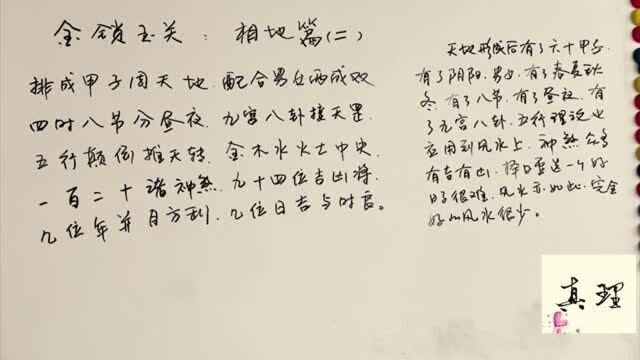 金锁玉关：相地篇(二)
排成甲子周天地.配合男女两成双
四时八节分昼夜.九宫八卦接天罡.
五行颠倒推天转.金木水火土中央.
一百二十诸神煞.九十四位吉凶将.
几位年并月方利.几位日吉与时良。
天地形成后有了六十甲子.
有了阴阳.男女.有了春夏秋
冬.有了八节.有了昼夜.有
了九宫八卦.五行理论也
应用到风水上.神煞众多
有吉有凶.择日要选一个好
日子很难.风水亦如此.完全
好的风水很少。
真理